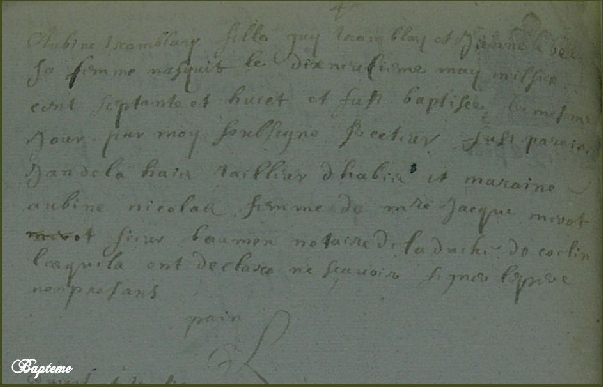 Aubine tremblay fille guy tremblay et Janne
Sa femme nasquit le dixneufiesme may mil six
cent septante et huict et fust baptisée le mesme
Jour par moy soussigné Recteur fust parain
Jan de la haie taillieur dhabis et maraine
aubine nicolas femme de mre Jacque mirot
sieur notaire de la duché de coelin
lesquels ont declaré ne scavoir signer le pere
non presant
pain
Bapteme